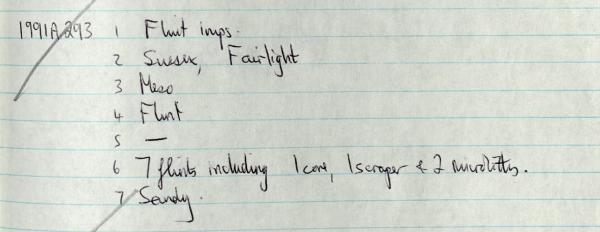 1991A293 1 Flint imps.
2 Sussex, Fairlight
3 Meso
4 Flint
5 —
6 7 flints including 1 core, 1 scraper & 2 microliths.
7 Sandy.